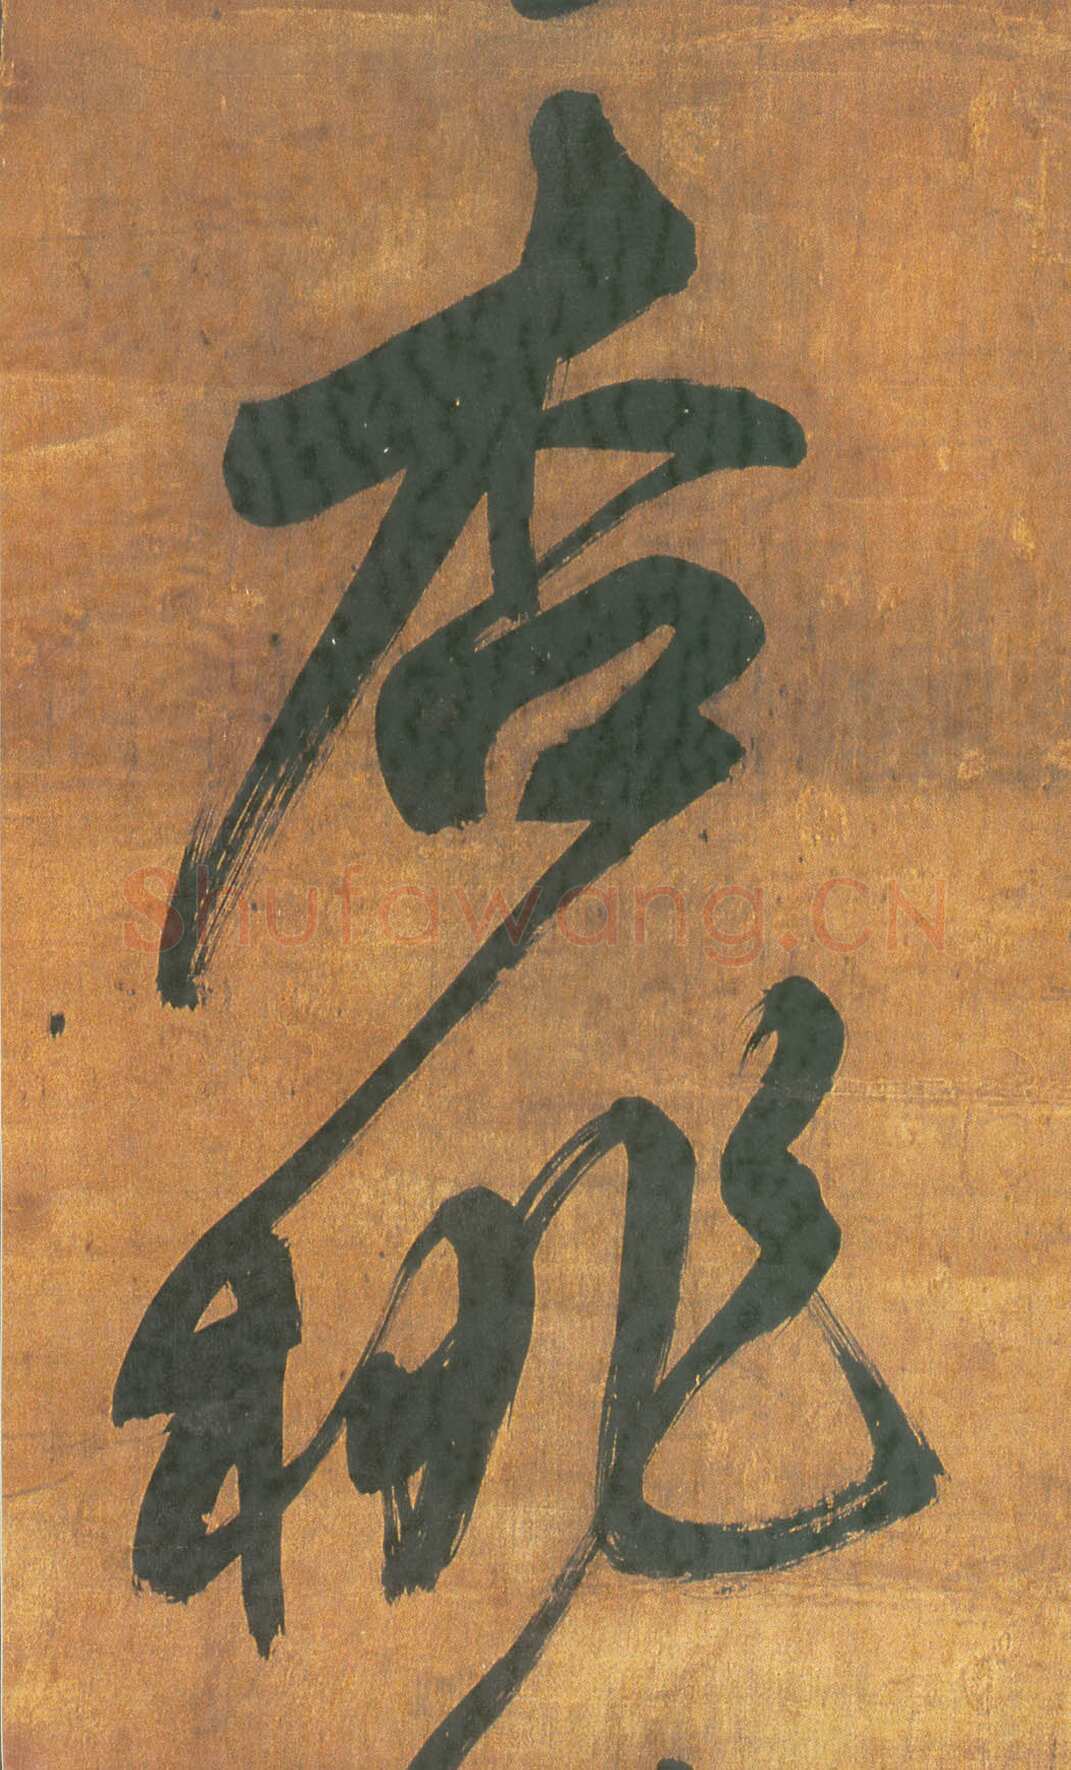 杏
桃
Shufawang.CN